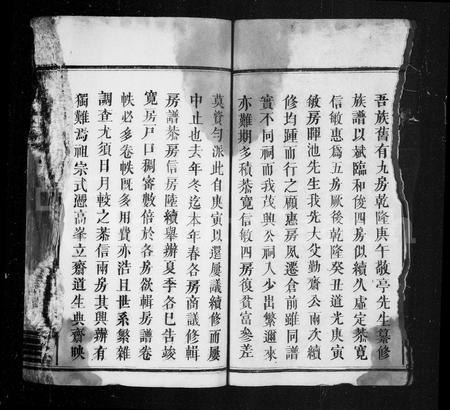 吾族舊有九房乾隆庚午敬亭先生纂修
族譜以斌臨和俊四房似續久虛定恭寬
信敏惠爲五房厥後乾隆癸丑道光庚寅
敏房暉池先生我先大父勤齋公兩次續
修均踵而行之顧惠房風遷倉前雖同譜
實不同祠而我茂興公祠人少出繁邇來
亦難期多積恭寬信敏四房復貧富參差
莫貲勻派此自庚寅以還屢議續修而屢
中止也去年冬迄本年春各房商議修輯
房譜恭房信房陸續舉辦夏季各已告竣
寬房戸口稠審數倍於各房欲輯房譜卷
帙必多卷帙旣多用費亦浩且世系繁雜
調查尤須日月較之恭信兩房其興辦有
獨難焉祖宗式憑高峯立齋道生典齋映